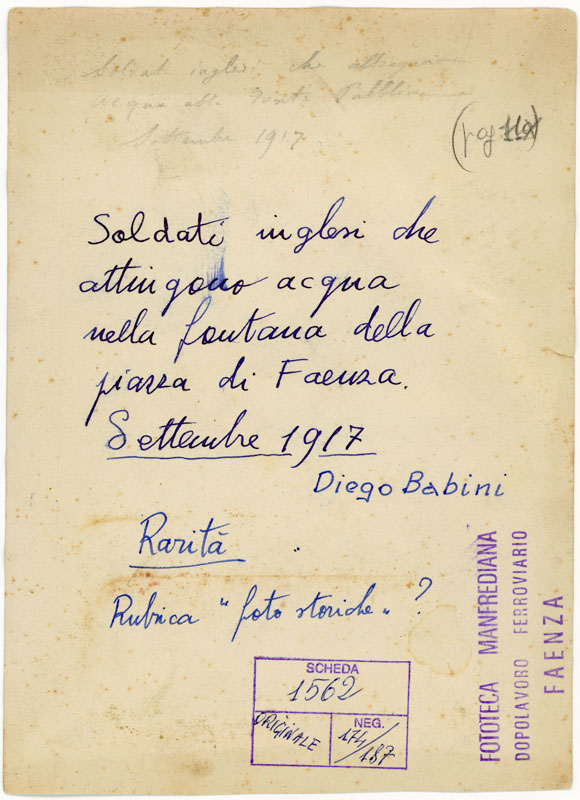 Soldati inglesi che
acqua alla fonte
Settembre 1917
(pag 110)
Soldati inglesi che
attingono acqua
nella fontana della
piazza di Faenza.
Settembre 1917
Diego Babini
Rarità
Rubrica "foto storiche" ?
SCHEDA
1562
ORIGINALE
NEG.
174/187
FOTOTECA MANFREDIANA
DOPOLAVORO FERROVIARIO
FAENZA